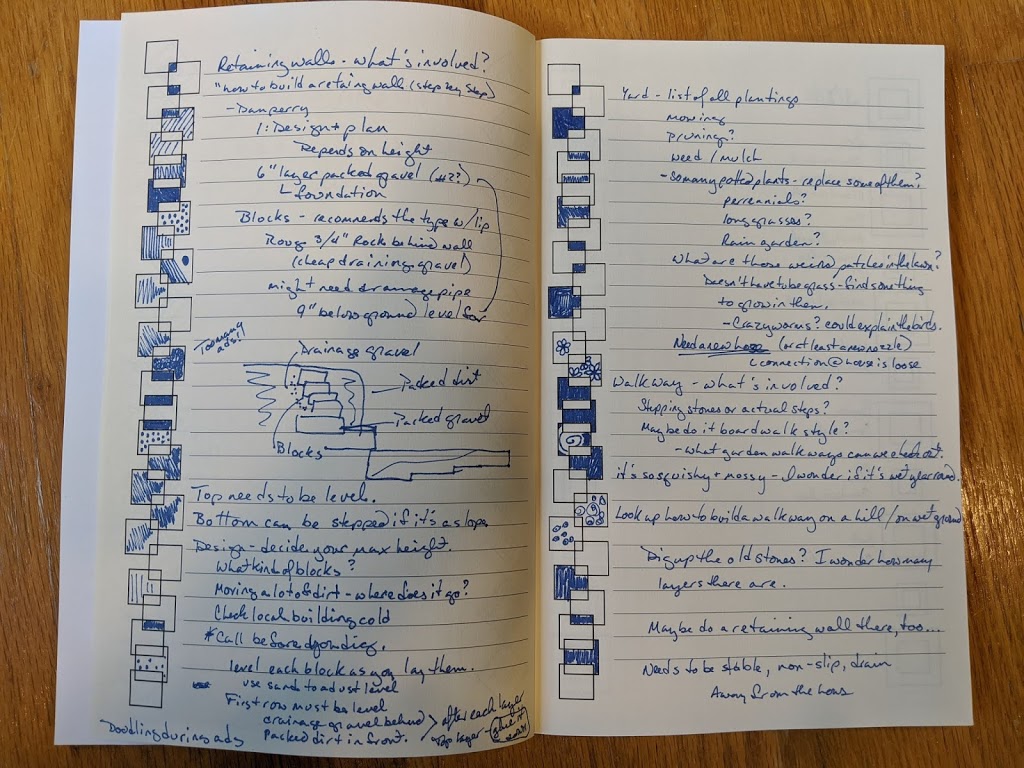 Retaining walls - what's involved?
"how to build a retaing wall (step by step)
- Danperry
1: Design + plan
Depends on height
6" layer packed gravel (#2?)
└ foundation
Blocks - recommends the type w/lip
Rough 3/4" Rock behind wall
(cheap draining gravel)
might need dramage pipe
9" below ground level for
Too many
ads!!
Drainage gravel
Packed dirt
Packed gravel
Blocks
Top needs to be level.
Bottom can be stepped if it's a slope
Design - decide your max height.
What kind of blocks?
Moving a lot of dirt - where does it go?
Check local building cold
* Call before you dig.
level each block as you lay them.
use sand to adjust level
First row must be level
drainage gravel behind > after each layer
Packed dirt in front.
Top layer - glue it
Doodling during ads
Yard - list of all plantings
mowing
prunings?
weed / mulch
- So many potted plants - replace some of them?
perrennials?
long grasses?
Rain garden?
What are those weird patches in the lawn?
Doesn't have to be grass - find something
to grow in them.
- Crazy worms? could explain the birds.
Need a new hose (or at least a new nozzle)
connection @ house is loose
Walkway - what's involved?
Stepping stones or actual steps?
Maybe do it boardwalk style?
- what garden walkways can we check out.
it's so squishy + mossy - I wonder if it's wet year round.
Look up how to build a walkway on a hill / on wet ground
Dig up the old stones? I wonder how many
layers there are.
Maybe do a retaining wall there, too...
Needs to be stable, non-slip, drain
Away from the hous